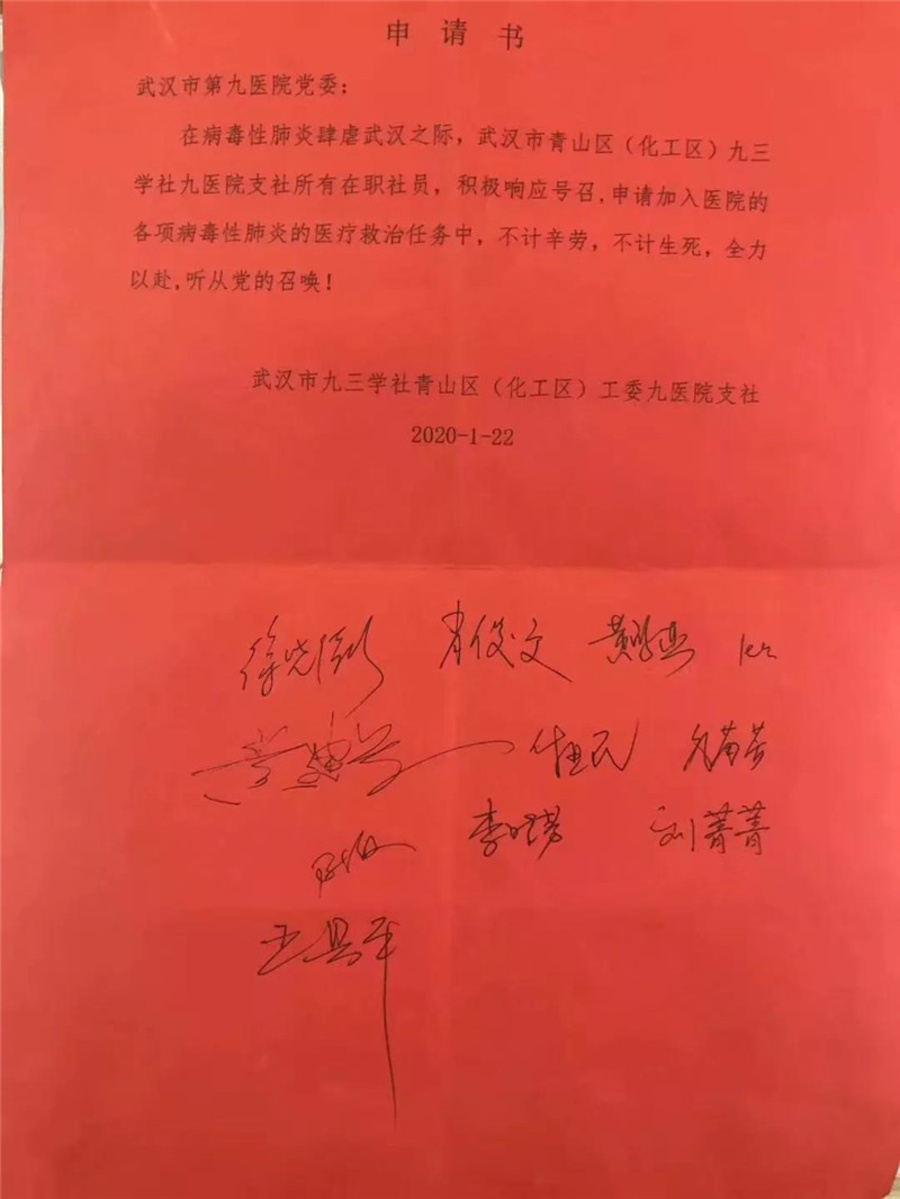 申请书
武汉市第九医院党委:
在病毒性肺炎肆虐武汉之际，武汉市青山区（化工区）九三
学社九医院支社所有在职社员，积极响应号召,申请加入医院的
各项病毒性肺炎的医疗救治任务中，不计辛劳，不计生死，全力
以赴,听从党的召唤！
武汉市九三学社青山区（化工区）工委九医院支社
2020-1-22
肖俊文
刘菁菁